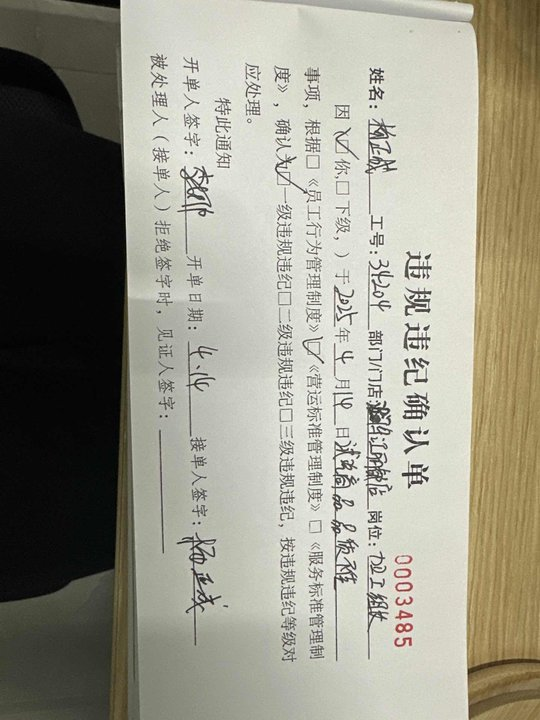 违规违纪确认单
0003485
姓名：杨正成 工号：34204 部门/门店： 店 岗位：加工组长
因（☑你，□下级，）于2025年4月14日 商品品质不准
事项，根据□《员工行为管理制度》☑《营运标准管理制度》□《服务标准管理制
度》，确认为☑一级违规违纪□二级违规违纪□三级违规违纪，按违规违纪等级对
应处理。
特此通知
开单人签字： 开单日期：4.14 接单人签字：杨正成
被处理人（接单人）拒绝签字时，见证人签字：